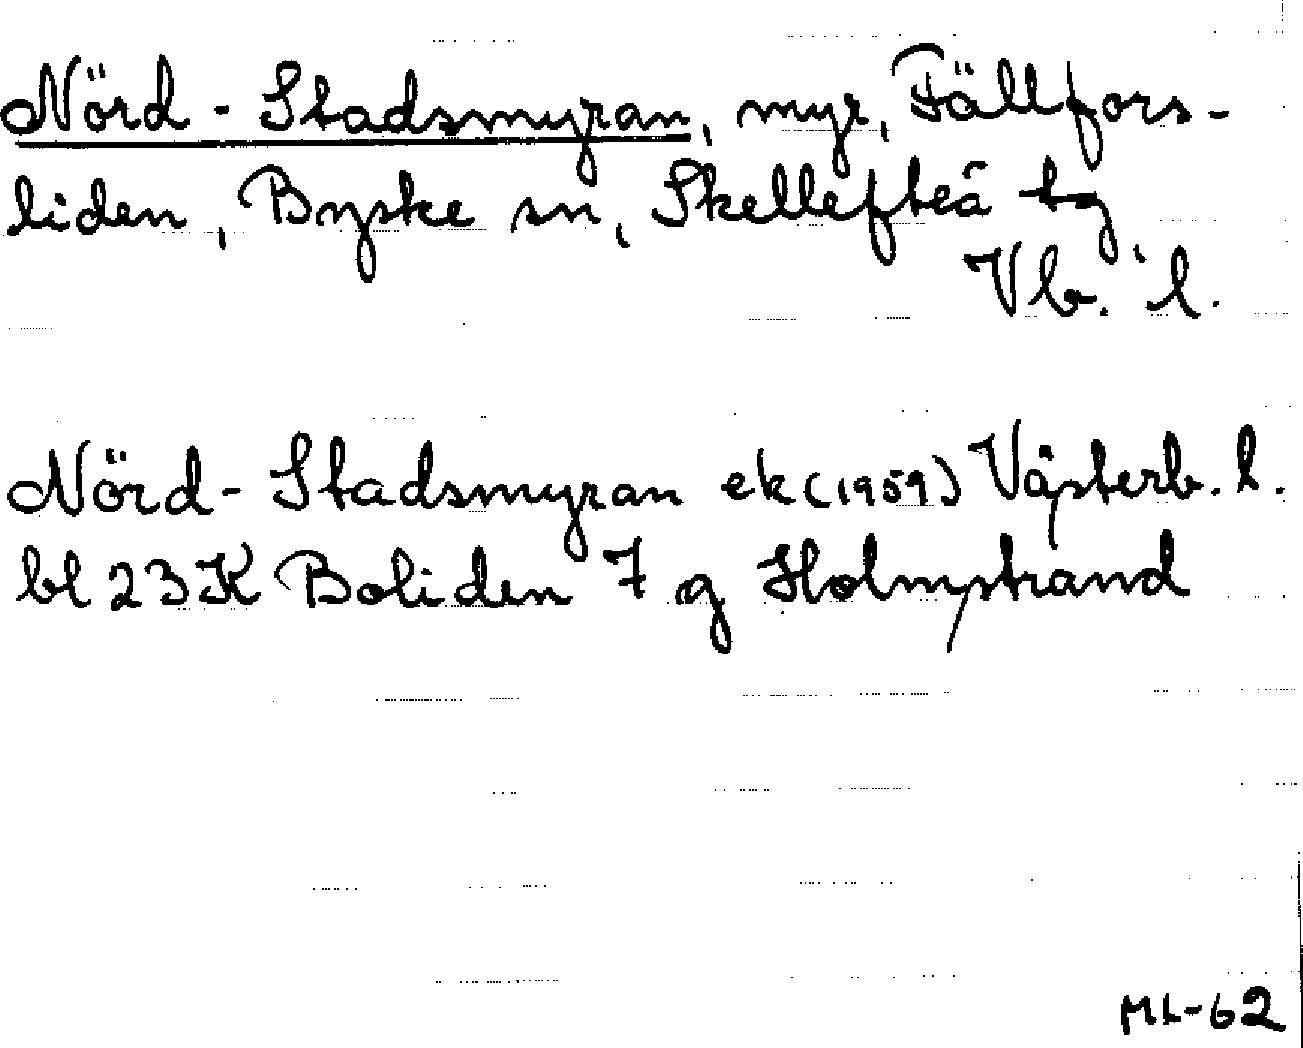 Nörd-Stadsmyran, myr, Fällfors-
liden, Byske sn, Skellefteå tg,
Vb. l.
Nörd-Stadsmyran ek (1959) Västerb. l.
bl 23K Boliden 7 g Holmstrand
ML-62